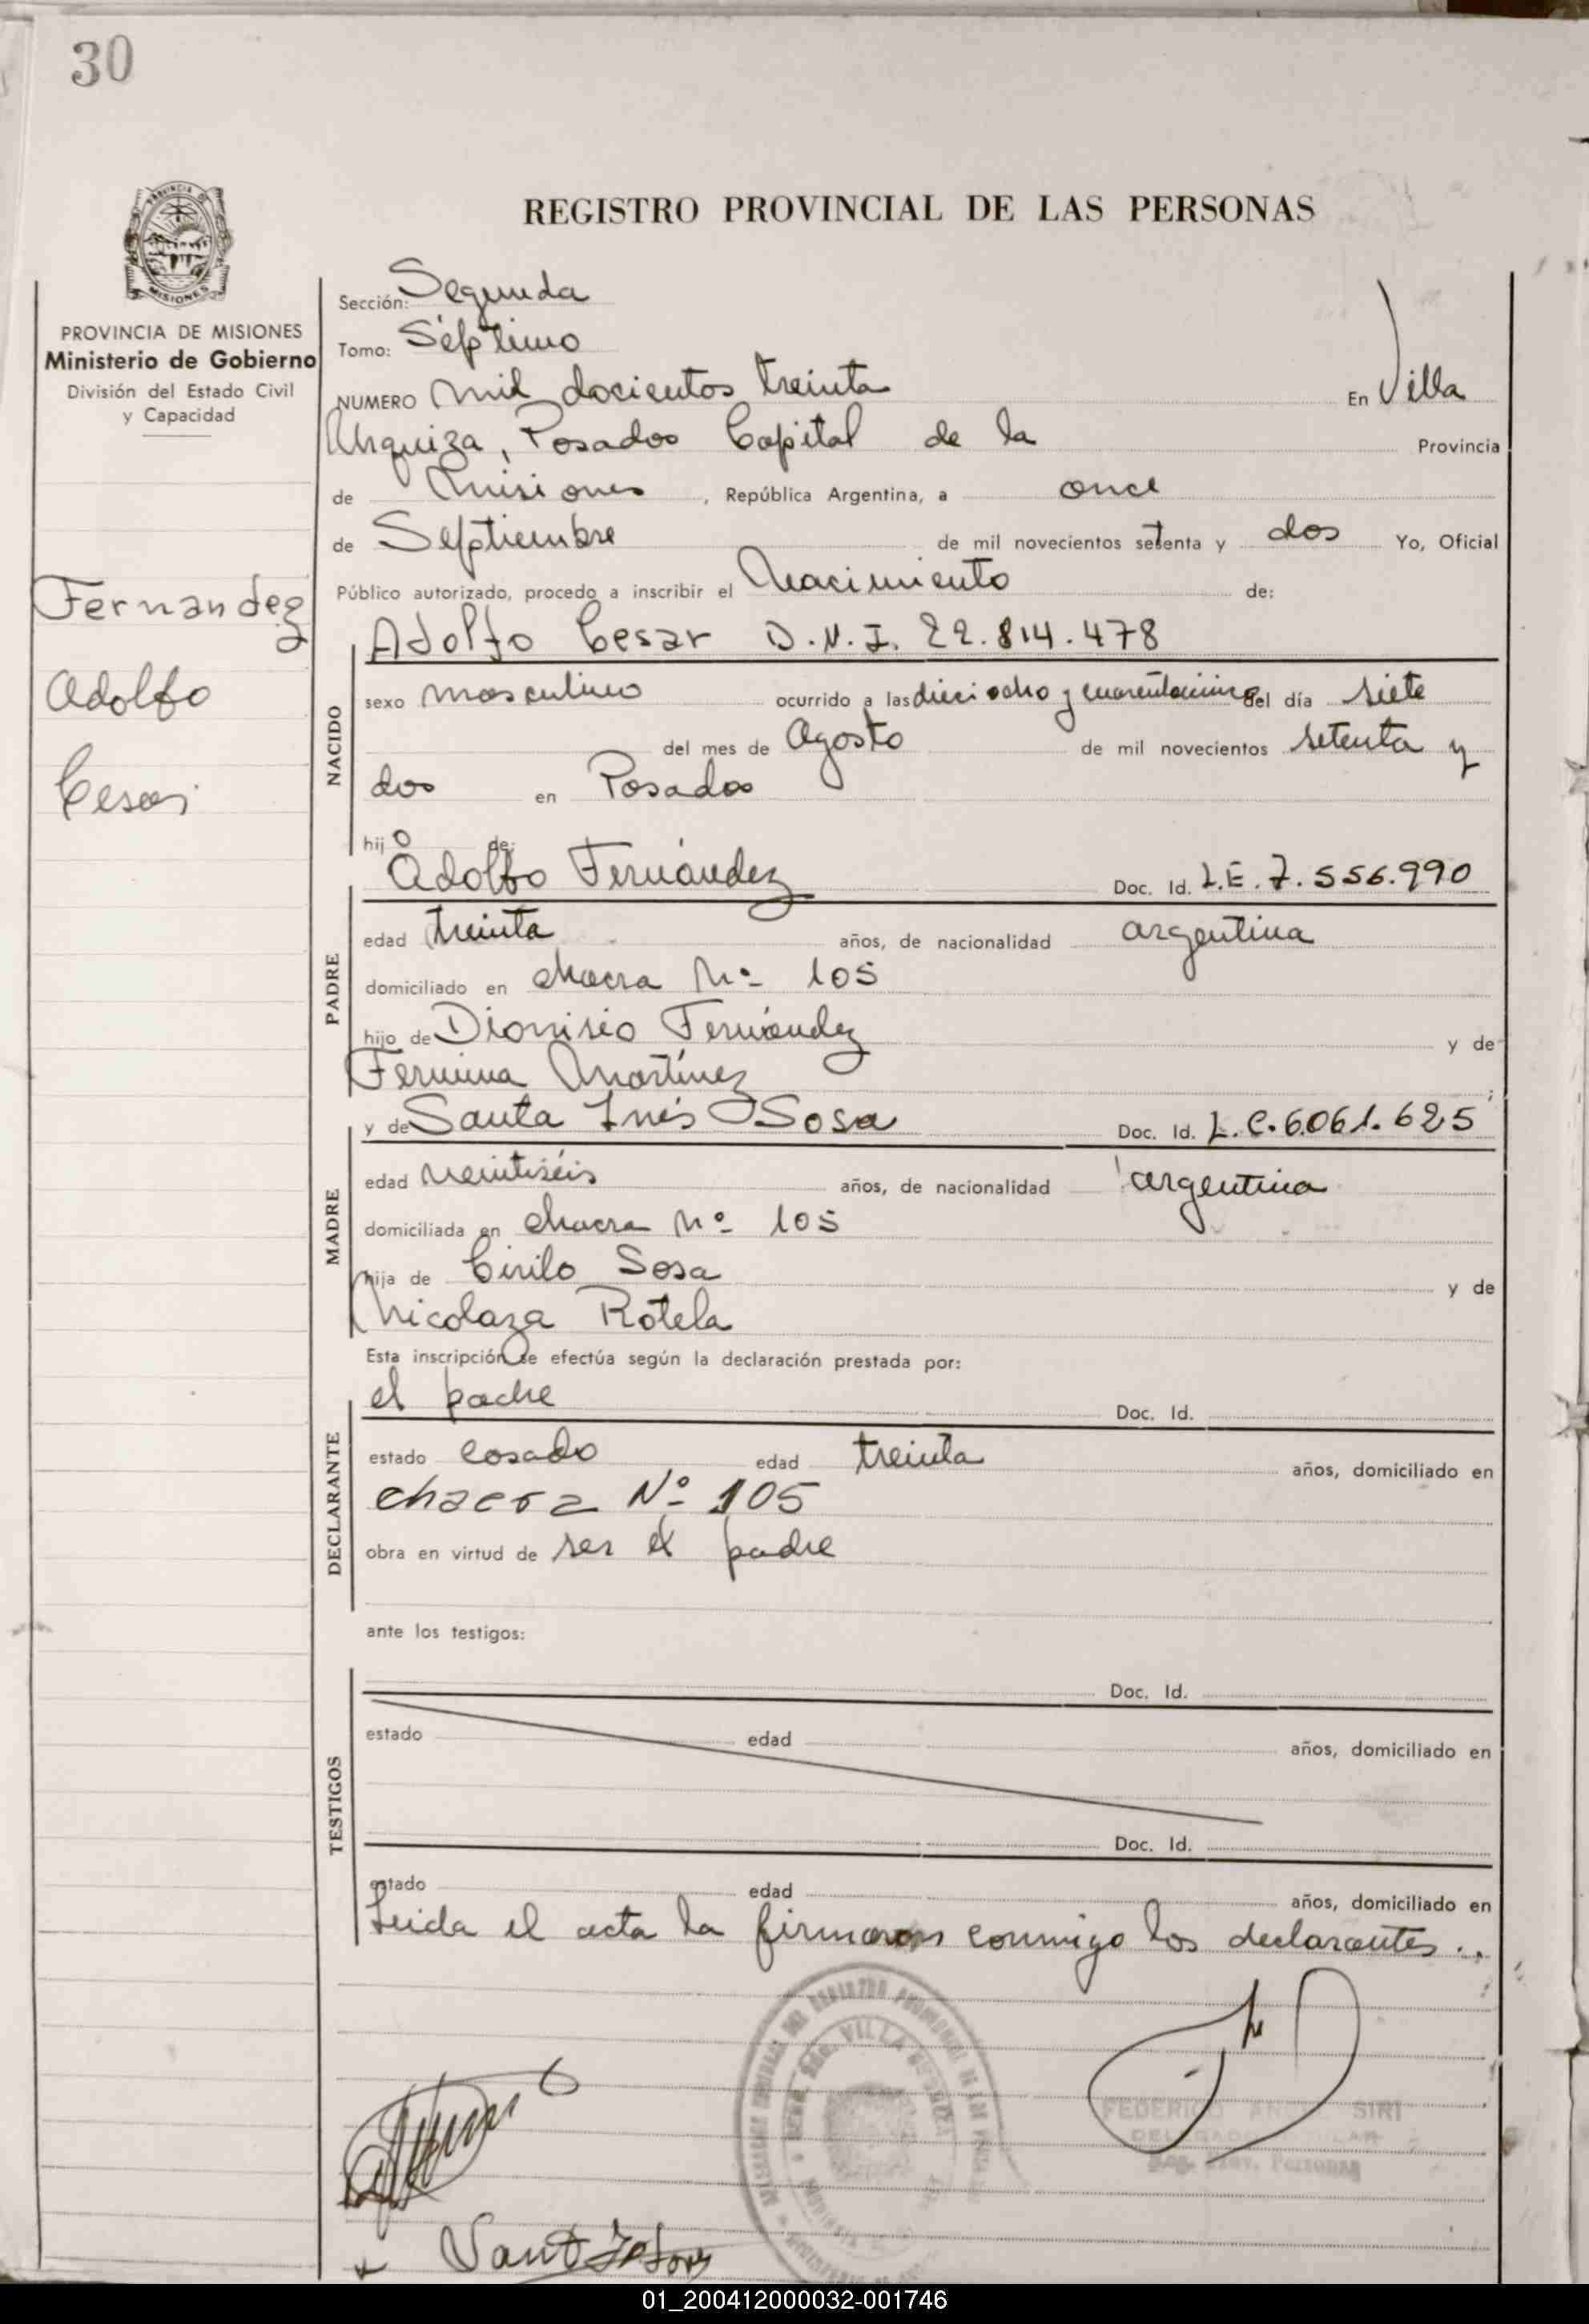 30
REGISTRO PROVINCIAL DE LAS PERSONAS
PROVINCIA DE MISIONES
Ministerio de Gobierno
División del Estado Civil
y Capacidad
Fernandez
Adolfo
Cesar
Sección: Segunda
Tomo: Séptimo
NUMERO mil docientos treinta En Villa
Urquiza, Posadas Capital de la Provincia
de Misiones, República Argentina, a once
de Septiembre de mil novecientos setenta y dos Yo, Oficial
Público autorizado, procedo a inscribir el Nacimiento de:
Adolfo Cesar D.N.I. 22.814.478
NACIDO
sexo masculino ocurrido a las dieciocho y cuarenticinco del día siete
del mes de Agosto de mil novecientos setenta y
dos en Posadas
hijo de:
Adolfo Fernández Doc. Id. L.E. 7.556.990
PADRE
edad treinta años, de nacionalidad argentina
domiciliado en chacra Nº 105
hijo de Dionisio Fernández y de
Fermina Martínez ;
y de Santa Inés Sosa Doc. Id. L.C. 6.061.625
MADRE
edad veintiséis años, de nacionalidad argentina
domiciliada en chacra Nº 105
hija de Cirilo Sosa y de
Nicolaza Rotela
Esta inscripción se efectúa según la declaración prestada por:
el padre Doc. Id.
DECLARANTE
estado casado edad treinta años, domiciliado en
chacra Nº 105
obra en virtud de ser el padre
ante los testigos:
Doc. Id.
TESTIGOS
estado edad años, domiciliado en
Doc. Id.
estado edad años, domiciliado en
Leida el acta la firmaron conmigo los declarantes..
VILLA URQUIZA
FEDERICO ANGEL SIRI
DELEGADO TITULAR
Reg. Prov. Personas
01_200412000032-001746